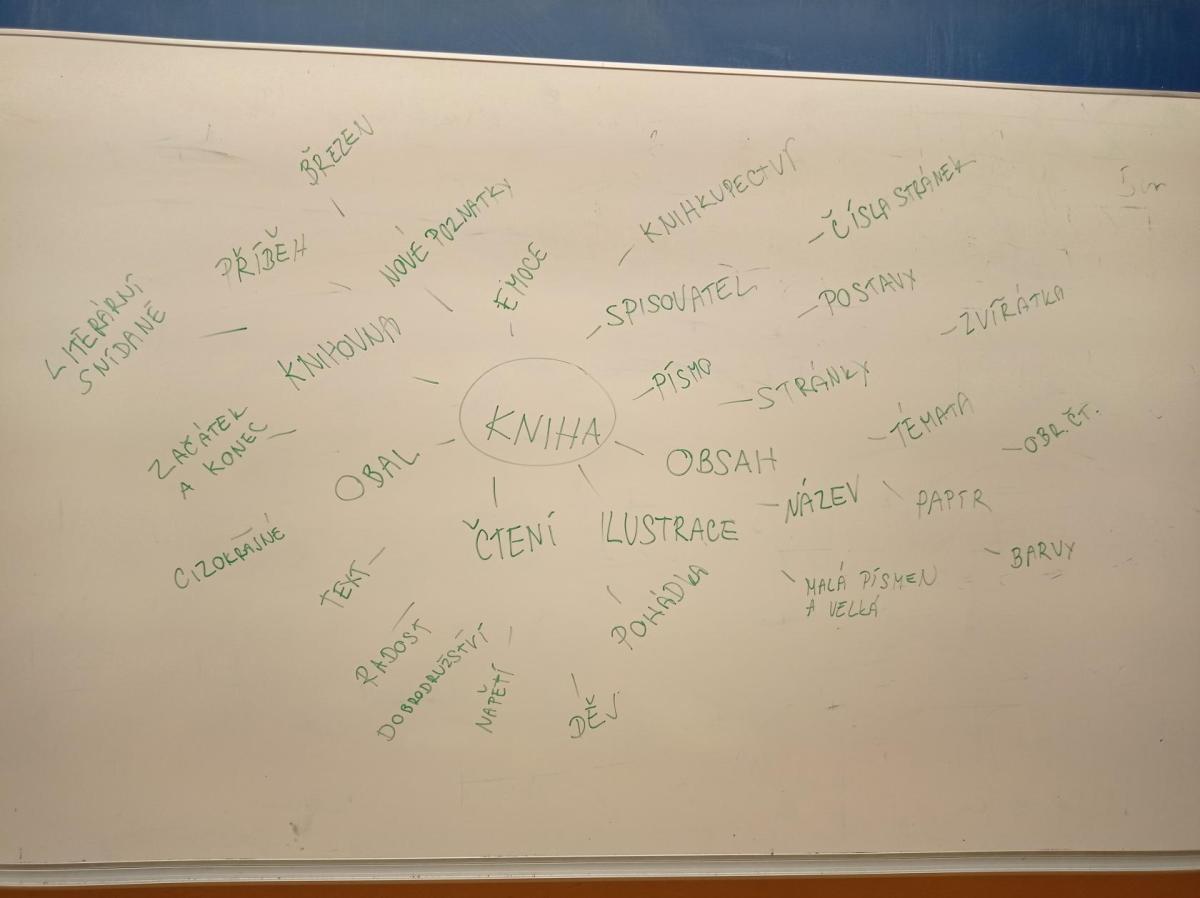 BŘEZEN
KNIHKUPECTVÍ
ČÍSLA STRÁNEK
NOVÉ POZNATKY
PŘÍBĚH
EMOCE
LITERÁRNÍ
SNÍDANĚ
SPISOVATEL
POSTAVY
ZVÍŘÁTKA
KNIHOVNA
PÍSMO
STRÁNKY
KNIHA
ZAČÁTEK
A KONEC
TÉMATA
OBR. ČT.
OBAL
OBSAH
NÁZEV
PAPÍR
ČTENÍ
ILUSTRACE
CIZOKRAJNÉ
BARVY
TEXT
MALÁ PÍSMEN
A VELKÁ
POHÁDKA
RADOST
DOBRODRUŽSTVÍ
NAPĚTÍ
DĚJ